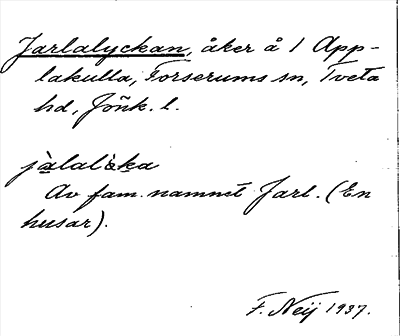 Jarlalyckan, åker å 1 App-
lakulla, Forserums sn, Tveta
hd, Jönk. l.
jàlalỳka
Av fam. namnet Jarl. (En
husar).
F. Neij 1937.